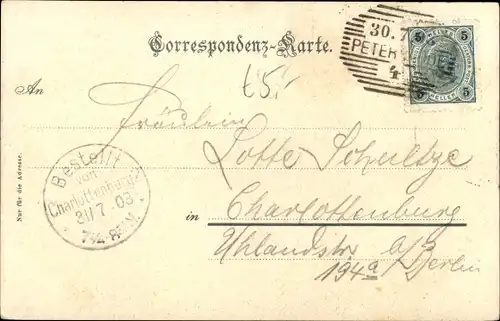 Correspondenz-Karte.
30.7
PETER
4
5 5
5 HELLER 5
An
£5.-
Fräulein
Lotte Schultze
in Charlottenburg
Uhlandstr. a/B
194a Berlin
Nur für die Adresse.
Bestellt
von
Charlottenburg 2
31/7.03
7½-8½ N.